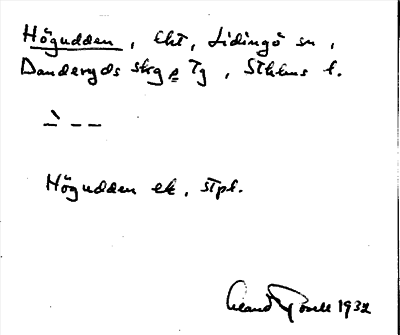 Högudden, lht, Lidingö sn,
Danderyds skg o Tg, Sthlms l.
— ̀ — —
Högudden ek, stpl.
1932